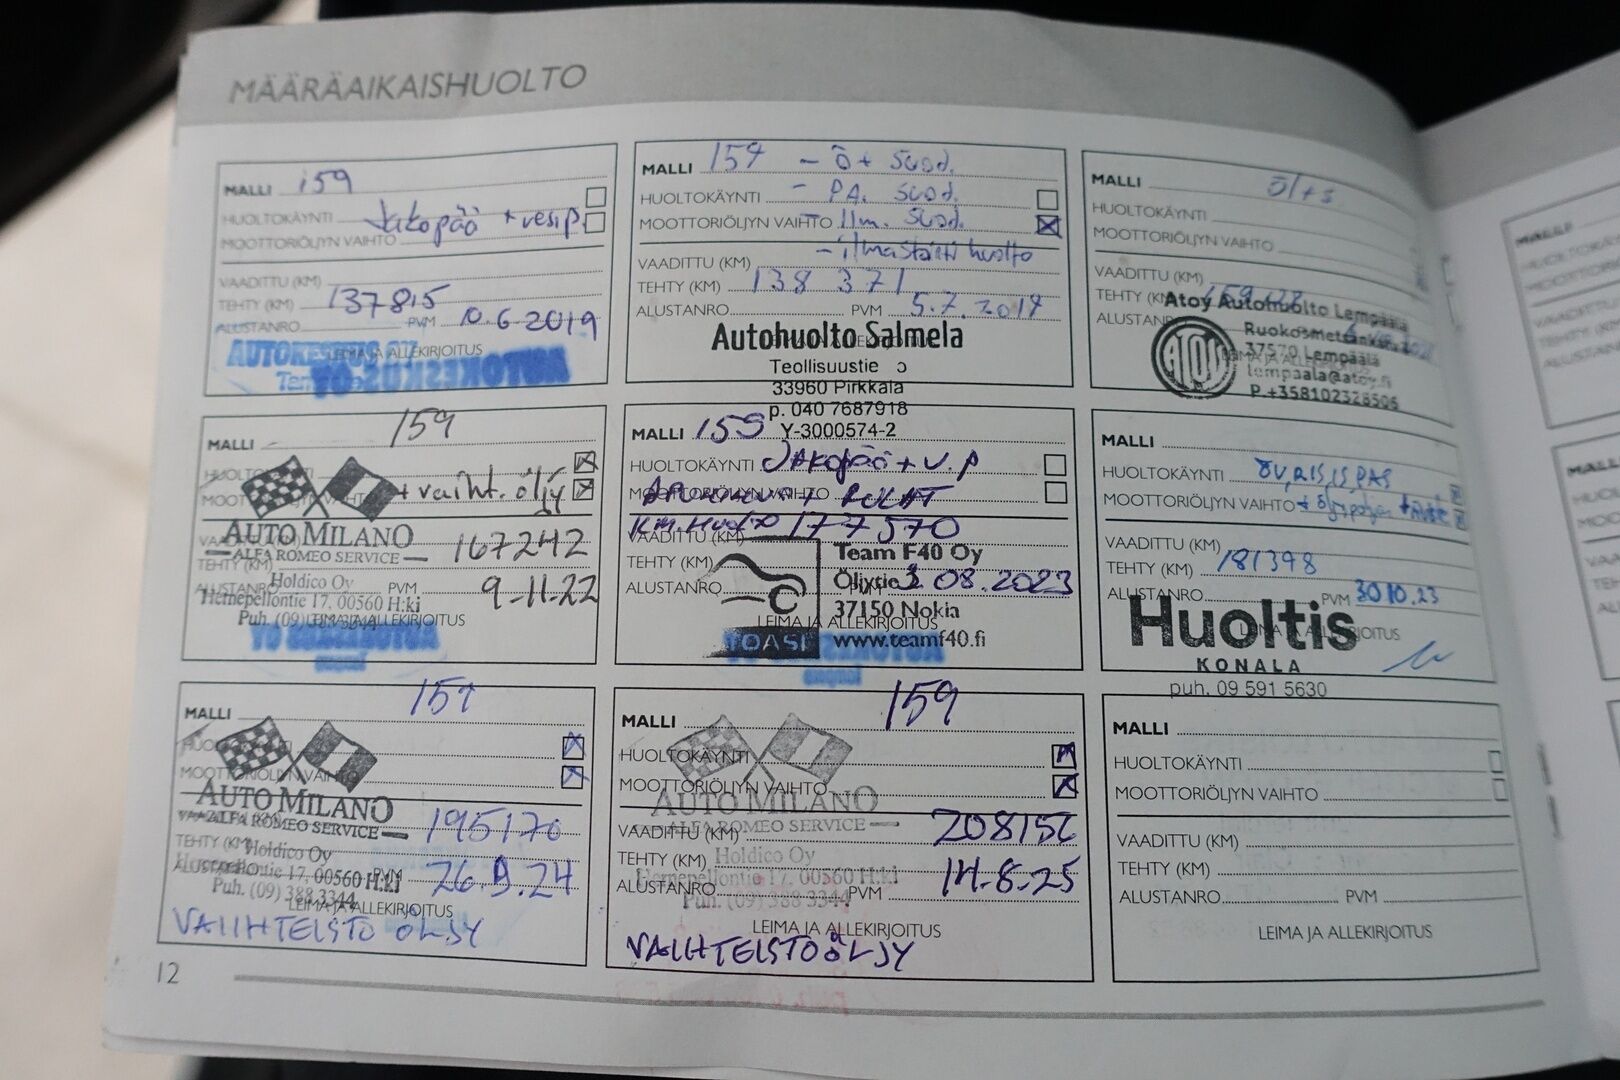 MÄÄRÄAIKAISHUOLTO
MALLI 159
HUOLTOKÄYNTI Jakopää + vesip.
MOOTTORIÖLJYN VAIHTO
VAADITTU (KM)
TEHTY (KM) 137815
ALUSTANRO PVM 10.6-2019
LEIMA JA ALLEKIRJOITUS
AUTOKESKUS OY
MALLI 159 - ö + suod.
HUOLTOKÄYNTI - P.A. suod.
MOOTTORIÖLJYN VAIHTO - ilm. suod.
- ilmastointi huolto
VAADITTU (KM)
TEHTY (KM) 138 371
ALUSTANRO PVM 5.7.2019
Autohuolto Salmela
Teollisuustie
33960 Pirkkala
p. 040 7687918
Y-3000574-2
MALLI öl+s
HUOLTOKÄYNTI
MOOTTORIÖLJYN VAIHTO
VAADITTU (KM)
TEHTY (KM)
ALUSTANRO
Atoy Autohuolto Lempäälä
ATOY
37570 Lempäälä
lempaala@atoy.fi
P.+358102328506
MALLI 159
+ vaiht. öljy
AUTO MILANO
ALFA ROMEO SERVICE
167242
TEHTY (KM)
Holdico Oy
PVM 9-11-22
Hernepellontie 17, 00560 H:ki
LEIMA JA ALLEKIRJOITUS
MALLI 159
HUOLTOKÄYNTI Jakopää + v.p
MOOTTORIÖLJYN VAIHTO
VAADITTU (KM)
Km. Huolto 177570
TEHTY (KM)
ALUSTANRO PVM 08.2023
Team F40 Oy
37150 Nokia
www.teamf40.fi
LEIMA JA ALLEKIRJOITUS
MALLI
HUOLTOKÄYNTI
MOOTTORIÖLJYN VAIHTO
VAADITTU (KM)
TEHTY (KM) 181398
ALUSTANRO PVM 30 10.23
LEIMA JA ALLEKIRJOITUS
Huoltis
KONALA
puh. 09 591 5630
MALLI 159
HUOLTOKÄYNTI
MOOTTORIÖLJYN VAIHTO
AUTO MILANO
ALFA ROMEO SERVICE
195170
TEHTY (KM)
Holdico Oy
Hernepellontie 17, 00560 H:ki
PVM 26.9.24
Puh. (09) 388 3344
LEIMA JA ALLEKIRJOITUS
VAIIHTEISTO ÖLJY
MALLI 159
HUOLTOKÄYNTI
MOOTTORIÖLJYN VAIHTO
AUTO MILANO
ALFA ROMEO SERVICE
VAADITTU (KM) 208156
TEHTY (KM)
Holdico Oy
Hernepellontie 17, 00560 H:ki
ALUSTANRO PVM 14-8-25
Puh. (09) 388 3344
LEIMA JA ALLEKIRJOITUS
VAIIHTEISTOÖLJY
MALLI
HUOLTOKÄYNTI
MOOTTORIÖLJYN VAIHTO
VAADITTU (KM)
TEHTY (KM)
ALUSTANRO PVM
LEIMA JA ALLEKIRJOITUS
12